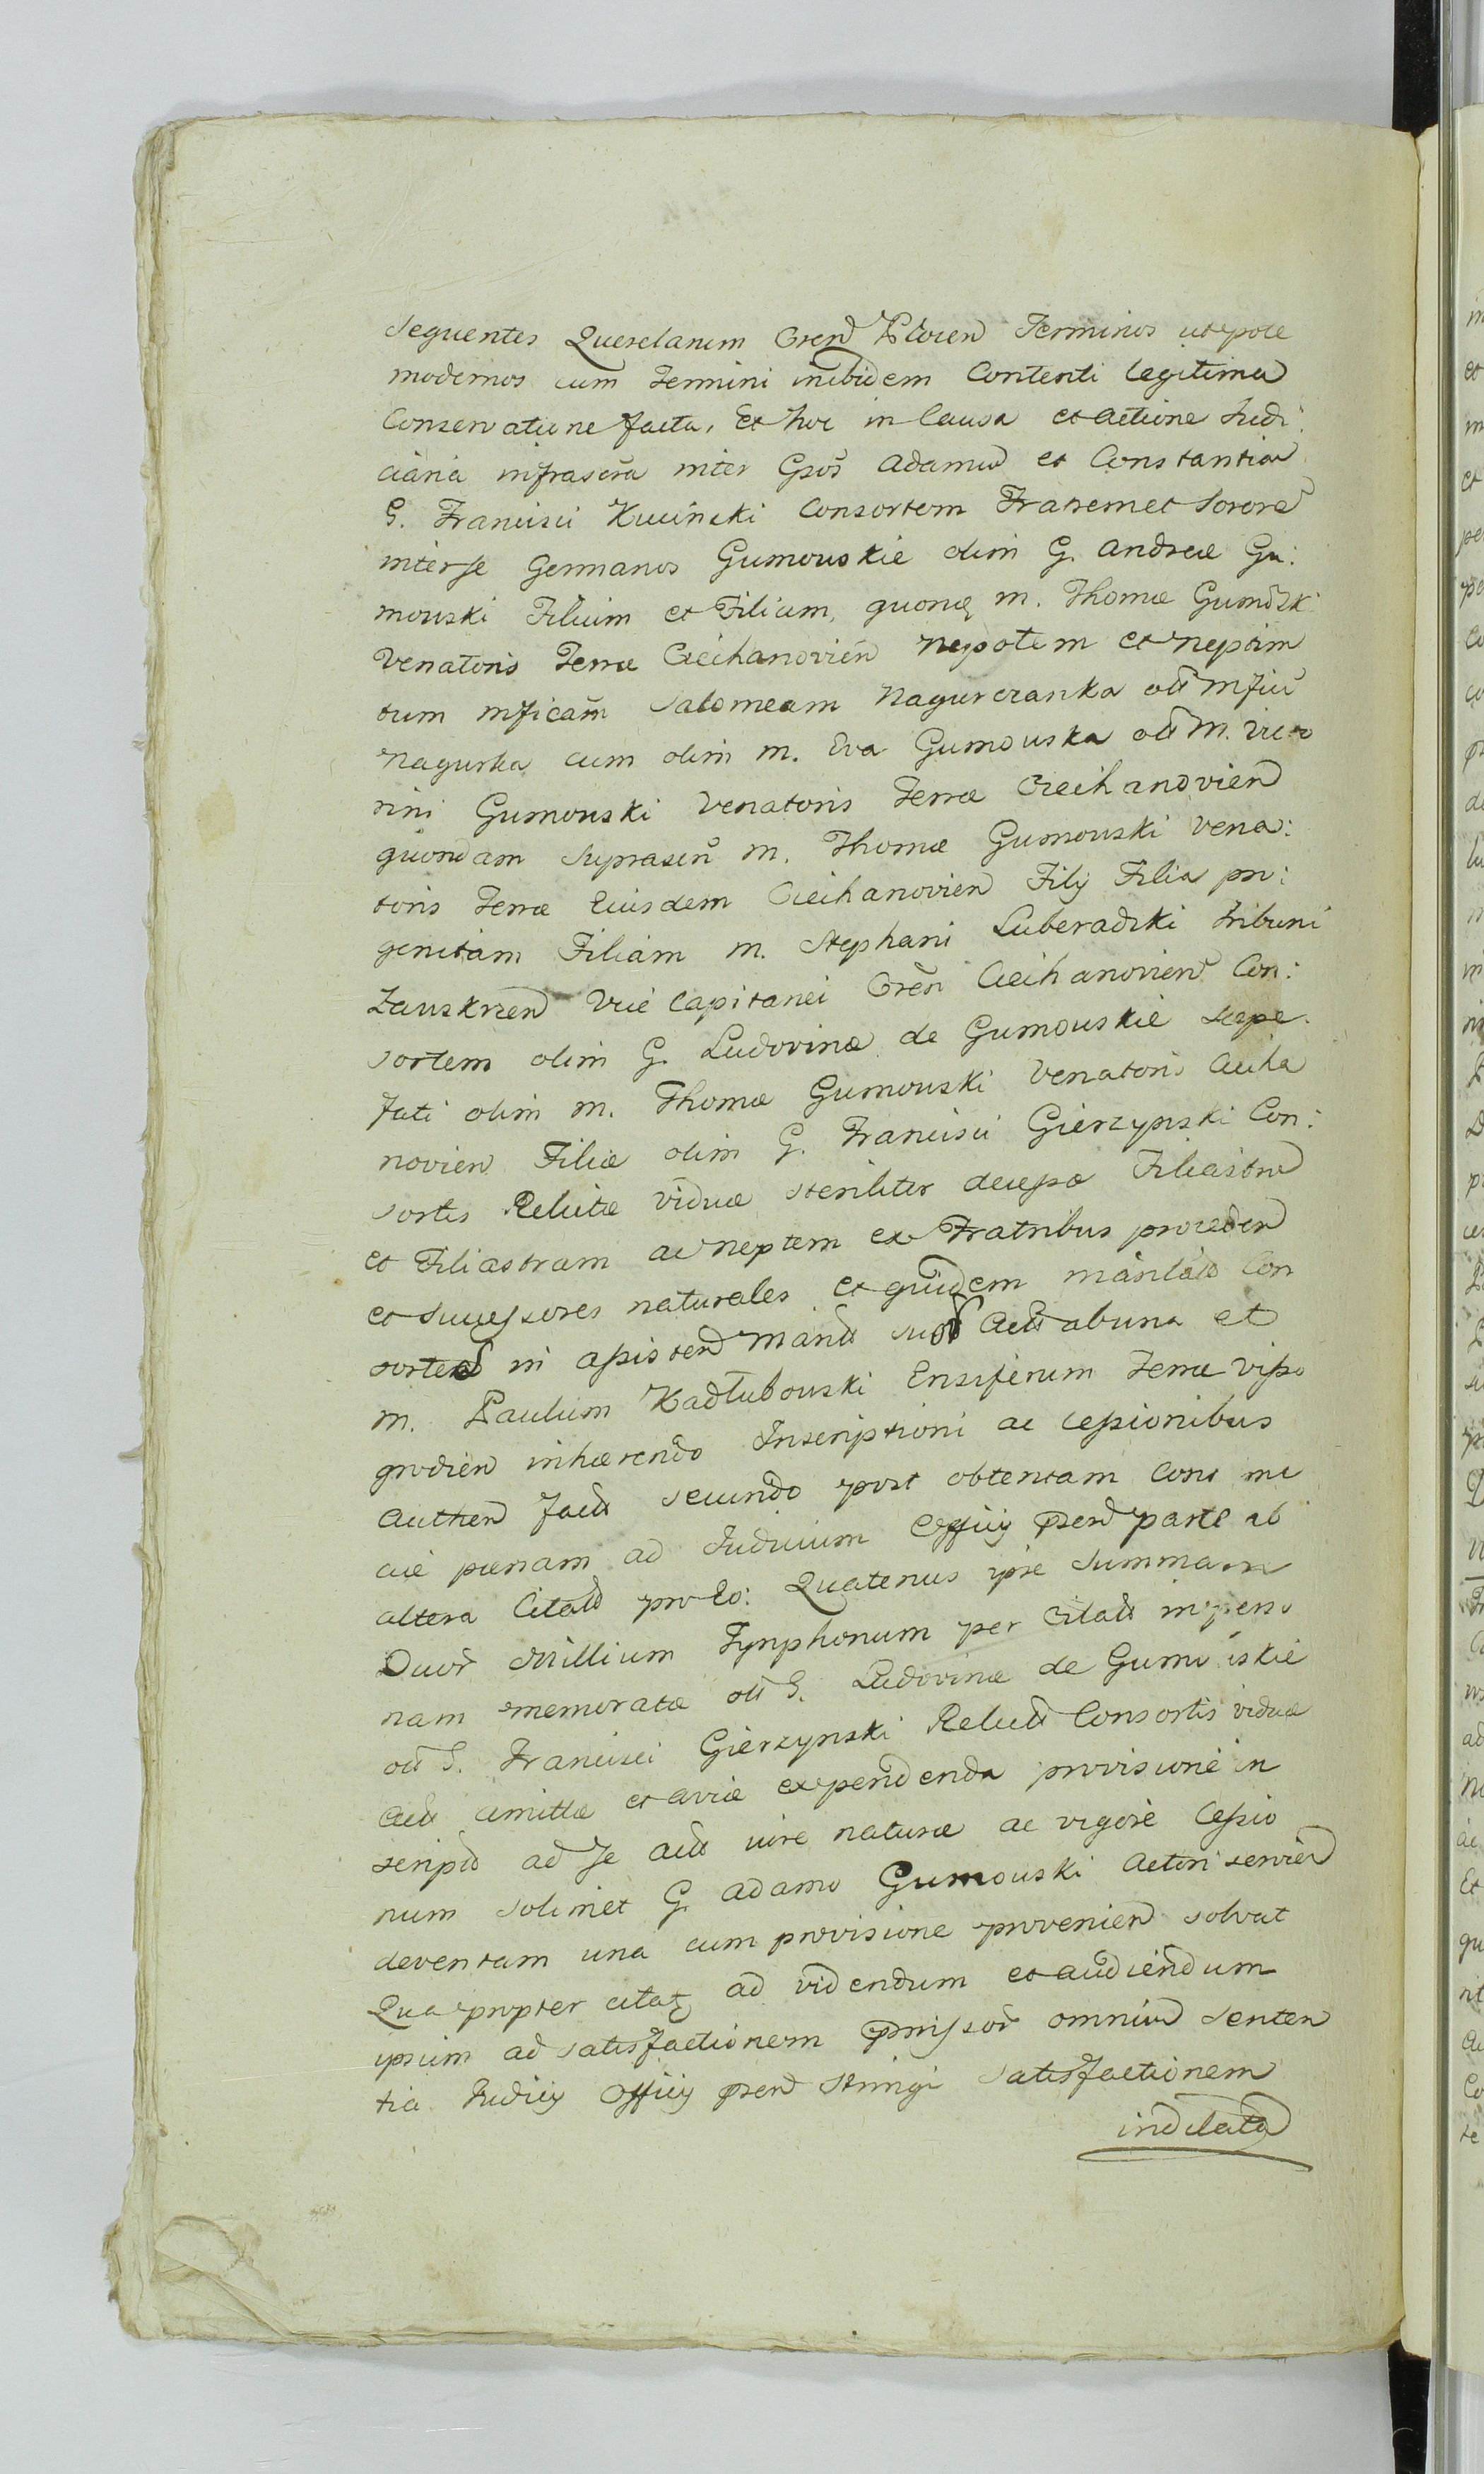 Sequentes Querelarum Gren̄ Plocen̄ Terminos utpote
modernos cum Termini inibidem Contenti legitima
Conservatione facta, Et hoc in Causa et actione Judi:
ciaria infrascra inter Gsos Adamū et Constantiā
G. Francisci Kuciński Consortem Fratrem et Sororē
inter se Germanos Gumouskie olim G. Andreæ Gu:
mouski Filium et Filiam, quonq m. Thomæ Gumoski
Venatoris Terræ Ciechanovien̄ Nepotem et Neptim
tum mficam Salomeam Nagurczanka olī mfici
Nagurka cum olim m. Eva Gumouska olī m. Victo
rini Gumouski Venatoris Terræ Ciechanovien̄
quondam suprascri m. Thomæ Gumouski Vena:
toris Terræ Eiusdem Ciechanovien̄ Filij Filia pro:
genitam Filiam m. Stephani Luberadzki Tribuni
Zauskrzen̄ Vice Capitanei Gren̄ Ciechanovien̄ Con:
sortem olim G. Ludovinæ de Gumouskie sæpe
fati olim m. Thomæ Gumouski Venatoris Ciecha
novien̄ Filiæ olim G. Francisci Gierzynski Con:
sortis Relictæ viduæ steriliter decessæ Filiastrū
et Filiastram ac Neptem ex Fratribus proceden̄
et Successores naturales et quidem maritatā Con
sortem in assisten̄ Mariti sui Act ab una et
m. Paulum Kadłubouski Ensiferum Terræ Visso
grodien̄ inhærendo Inscriptioni ac cessionibus
Authen̄ fact secundo post obtentam Contuma
ciæ pœnam ad Judicium Officij præn̄ parte ab
altera Citatū pro Eo: Quatenus ipse Summam
Duor Millium Tynphonum per Citat in person̄
nam memoratæ olī G. Ludovinæ de Gumouskie
olī G. Francisci Gierzynski Relict Consortis viduæ
Act amittæ et aviæ expendenda provisione in
scriptā ad se Act iure naturæ ac vigore Cessio
num solimet G. Adamo Gumouski Actori servien̄
deventam una cum provisione provenien̄ solvat
Qua propter citatq ad videndum et audiendum
ipsum ad satisfactionem pmissor omniū senten
tia Judicij Officij præn̄ stringi satisfactionem
indilatā